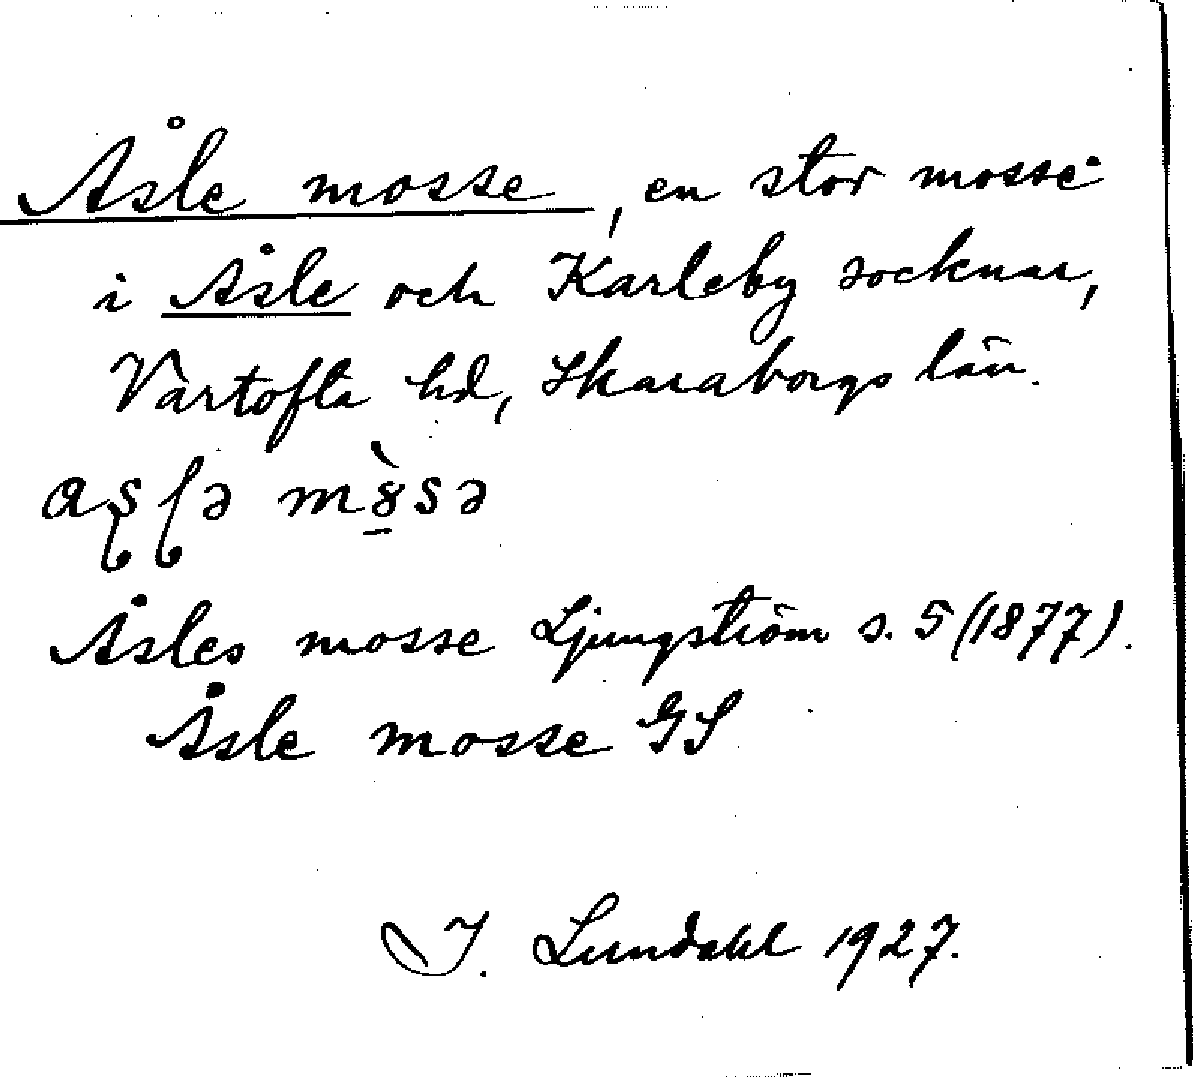 Åsle mosse, en stor mosse
i Åsle och Karleby socknar,
Vartofta hd, Skaraborgs län.
aʂɭə mò̱sə
Åsles mosse Ljungström s. 5 (1877).
Åsle mosse GS
I. Lundahl 1927.